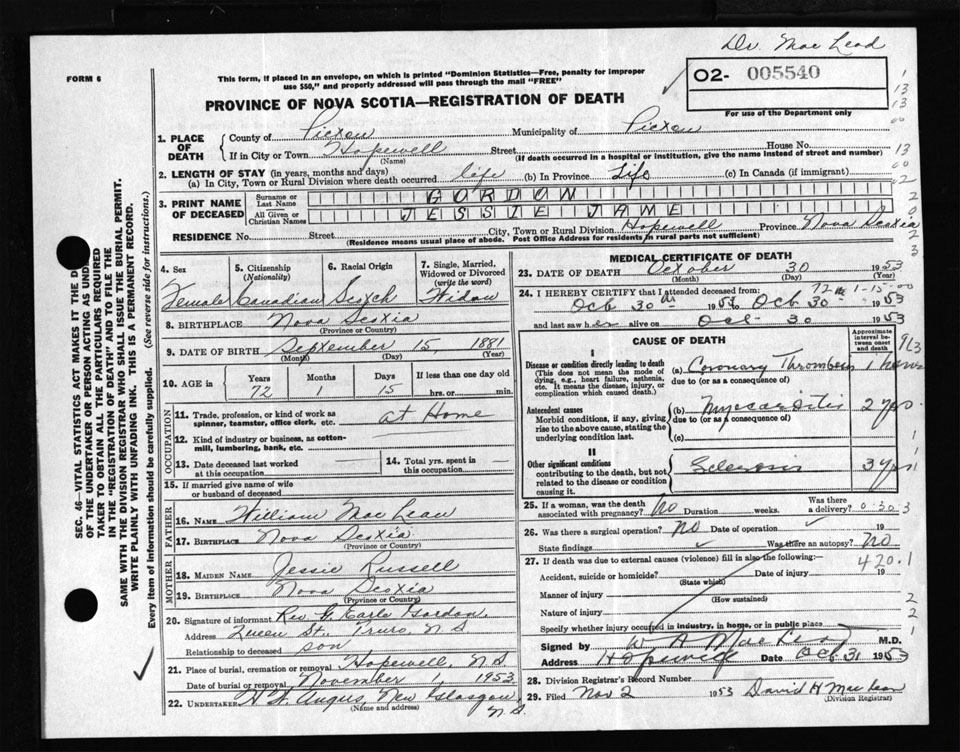 Dr. MacLeod
FORM 6
This form, if placed in an envelope, on which is printed "Dominion Statistics—Free, penalty for improper
use $50," and properly addressed will pass through the mail "FREE"
O2- 005540
PROVINCE OF NOVA SCOTIA—REGISTRATION OF DEATH
For use of the Department only
1. PLACE OF DEATH
County of Pictou Municipality of Pictou
If in City or Town Hopewell Street House No.
(Name) (If death occurred in a hospital or institution, give the name instead of street and number)
2. LENGTH OF STAY (in years, months and days)
(a) In City, Town or Rural Division where death occurred life (b) In Province Life (c) In Canada (if immigrant)
3. PRINT NAME OF DECEASED
Surname or Last Name GORDON
All Given or Christian Names JESSIE JANE
RESIDENCE No. Street City, Town or Rural Division Hopewell Province Nova Scotia
(Residence means usual place of abode. Post Office Address for residents in rural parts not sufficient)
4. Sex Female
5. Citizenship (Nationality) Canadian
6. Racial Origin Scotch
7. Single, Married, Widowed or Divorced (write the word) Widow
8. BIRTHPLACE Nova Scotia
(Province or Country)
9. DATE OF BIRTH September 15 1881
(Month) (Day) (Year)
10. AGE in Years 72 Months 1 Days 15 If less than one day old hrs. or min.
OCCUPATION
11. Trade, profession, or kind of work as
spinner, teamster, office clerk, etc. at Home
12. Kind of industry or business, as cotton-
mill, lumbering, bank, etc.
13. Date deceased last worked
at this occupation
14. Total yrs. spent in
this occupation
15. If married give name of wife
or husband of deceased
FATHER
16. Name William MacLean
17. Birthplace Nova Scotia
(Province or Country)
MOTHER
18. MAIDEN NAME Jessie Russell
19. BIRTHPLACE Nova Scotia
(Province or Country)
20. Signature of informant Rev. G. Earle Gordon,
Address Queen St., Truro, N.S.
Relationship to deceased son
21. Place of burial, cremation or removal Hopewell, N.S.
Date of burial or removal November 1, 1953
22. UNDERTAKER Angus, New Glasgow, N.S.
(Name and address)
MEDICAL CERTIFICATE OF DEATH
23. DATE OF DEATH October 30 1953
(Month) (Day) (Year)
72 1-15-00
24. I HEREBY CERTIFY that I attended deceased from:
Oct 30th 1953 to Oct 30 1953
and last saw her alive on Oct 30 1953
CAUSE OF DEATH
Approximate interval between onset and death
I
Disease or condition directly leading to death
(This does not mean the mode of
dying, e.g., heart failure, asthenia,
etc. It means the disease, injury, or
complication which caused death.)
(a) Coronary Thrombosis
due to (or as a consequence of)
Antecedent causes
Morbid conditions, if any, giving
rise to the above cause, stating the
underlying condition last.
(b) Myocarditis 2 yrs.
due to (or as a consequence of)
(c)
II
Other significant conditions
contributing to the death, but not
related to the disease or condition
causing it.
Sclerosis 3 yrs
25. If a woman, was the death
associated with pregnancy? No Duration weeks. Was there a delivery?
26. Was there a surgical operation? No Date of operation 19
State findings Was there an autopsy? No
27. If death was due to external causes (violence) fill in also the following: 420.1
Accident, suicide or homicide? Date of injury 19
(State which)
Manner of injury
(How sustained)
Nature of injury
Specify whether injury occurred in industry, in home, or in public place
Signed by W A MacLeod M.D.
Address Hopewell Date Oct 31 1953
28. Division Registrar's Record Number
29. Filed Nov 2 1953 David H MacLean
(Division Registrar)
SEC. 46—VITAL STATISTICS ACT MAKES IT THE
OF THE UNDERTAKER OR PERSON ACTING AS
TAKER TO OBTAIN ALL THE PARTICULARS REQUIRED
IN THE "REGISTRATION OF DEATH" AND TO FILE THE
SAME WITH THE DIVISION REGISTRAR WHO SHALL ISSUE THE BURIAL PERMIT.
WRITE PLAINLY WITH UNFADING INK. THIS IS A PERMANENT RECORD.
Every item of information should be carefully supplied. (See reverse side for instructions.)